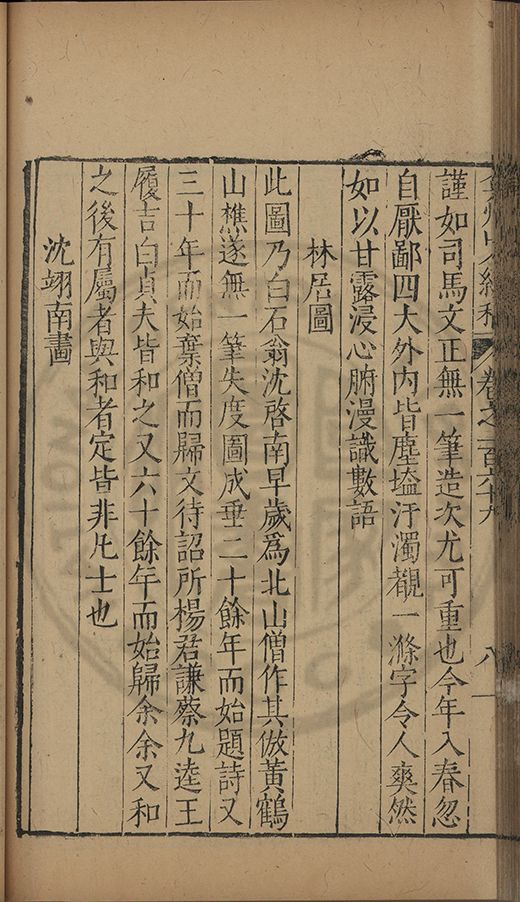 弇州山人續稿 卷之一百六十九 八
謹如司馬文正無一筆造次尤可重也今年入春忽
自厭鄙四大外内皆塵壒汙濁覩一滌字令人爽然
如以甘露浸心腑漫識數語
林居圖
此圖乃白石翁沈啓南早歲爲北山僧作其倣黃鶴
山樵遂無一筆失度圖成垂二十餘年而始題詩又
三十年而始棄僧而歸文待詔所楊君謙蔡九逵王
履吉白貞夫皆和之又六十餘年而始歸余余又和
之後有屬者與和者定皆非凡士也
沈翊南畫